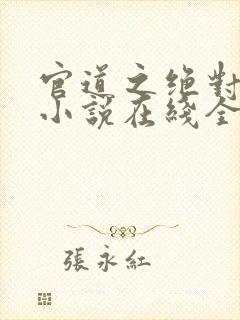 官道之绝對
小說在綫全
張永紅